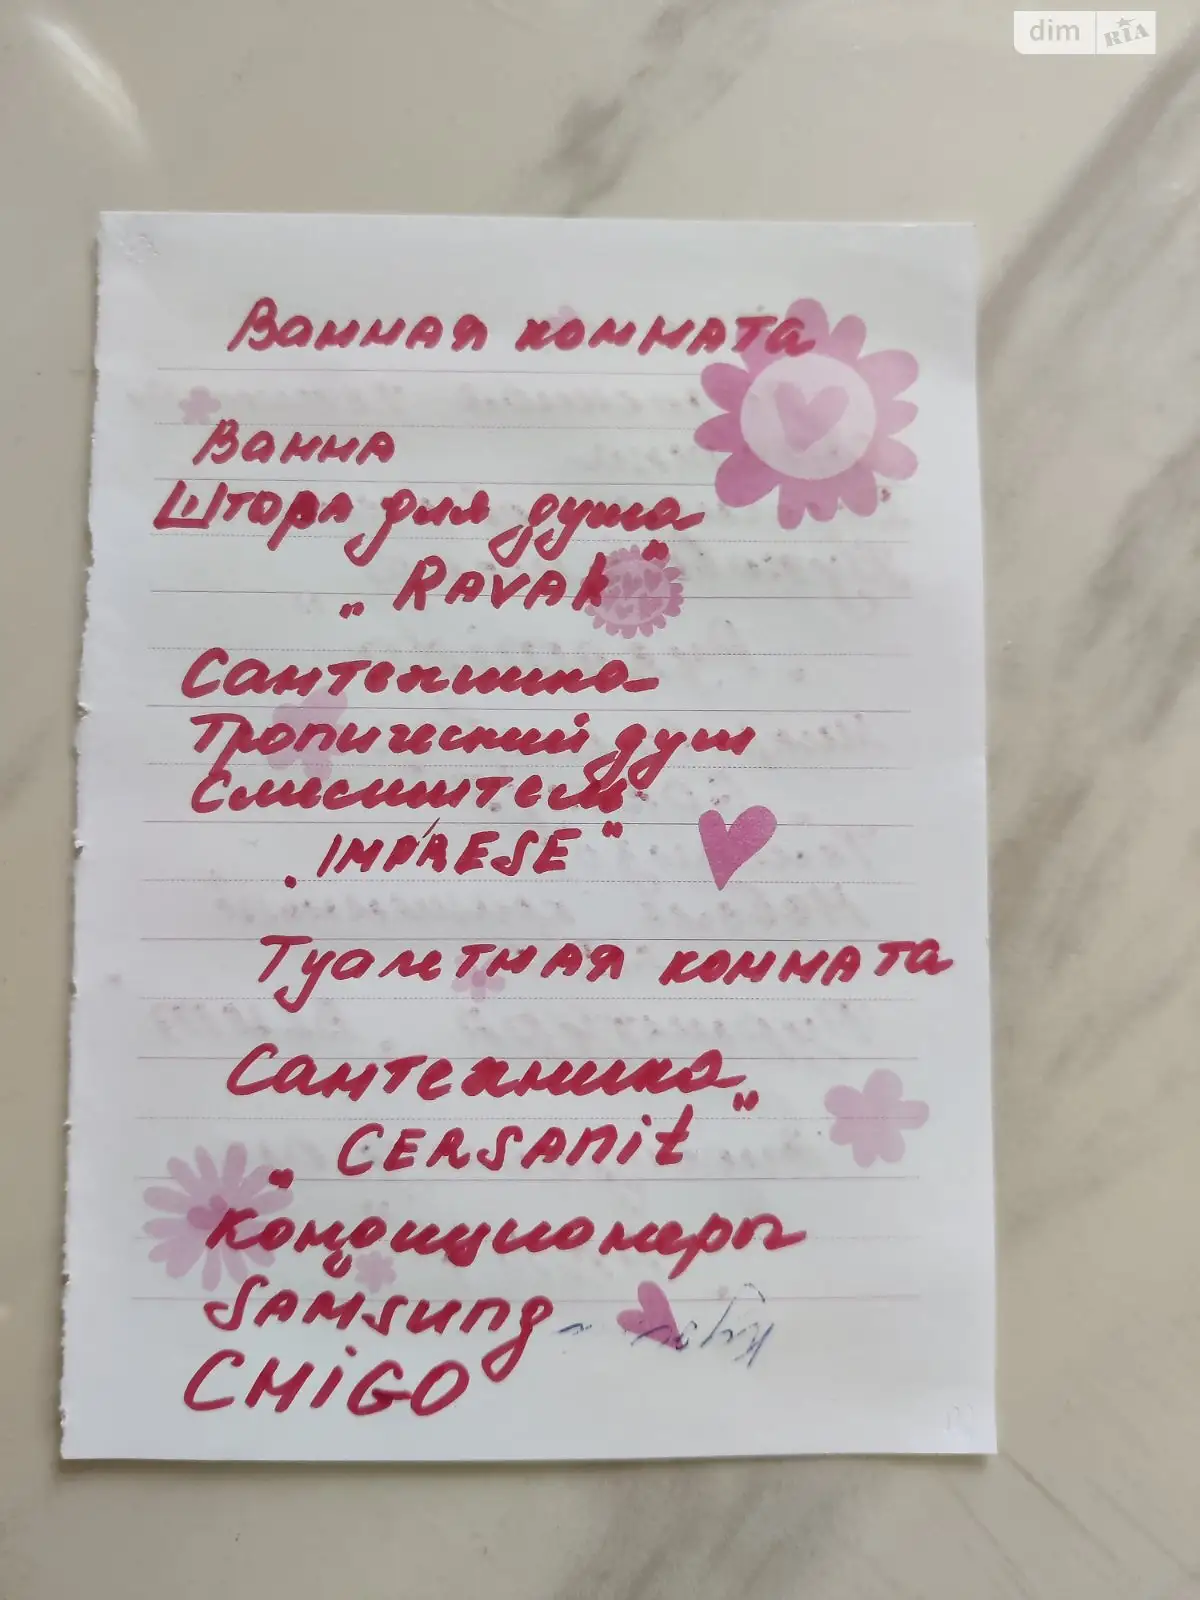 dim RIA
Ванная комната
Ванна
Штора для душа
„RAVAK"
Сантехника
Тропический душ
Смеситель
„IMPRESE"
Туалетная комната
Сантехника
"CERSANit"
Кондиционеры
SAMSUNg -
CHiGO